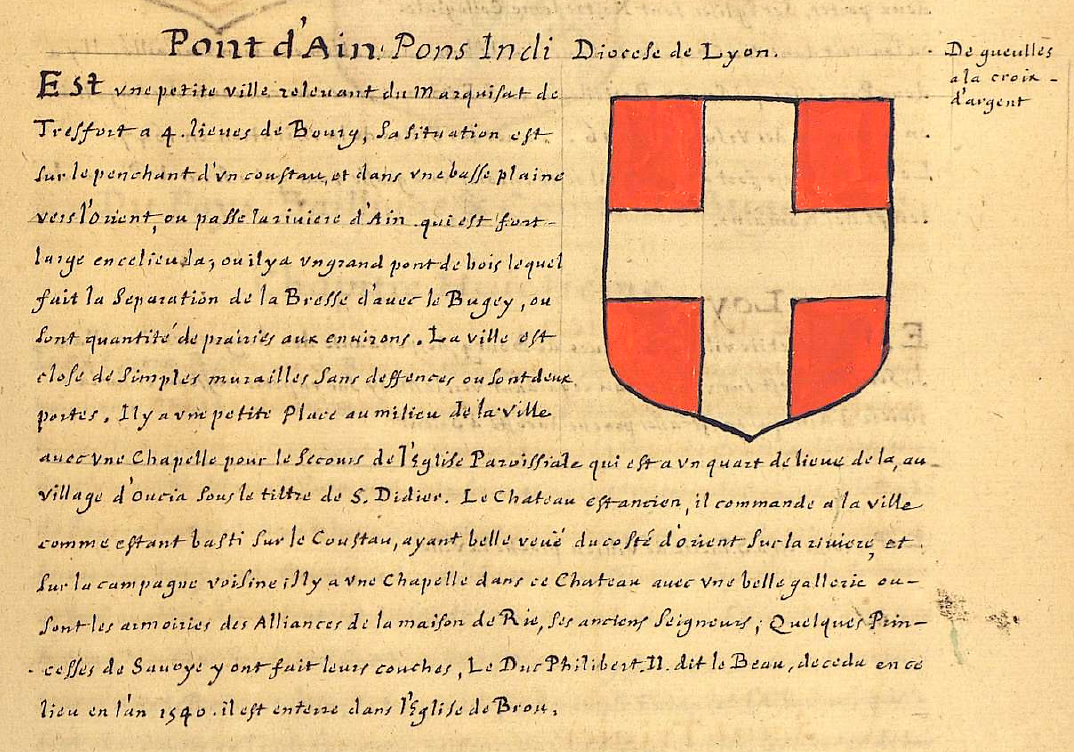 Pont d'Ain: Pons Indi Diocese de Lyon.
De gueulles
a la croix -
d'argent
Est vne petite ville relevant du Marquisat de
Treffort a 4. lieues de Bourg, sa situation est
sur le penchant d'vn coustau, et dans vne basse plaine
vers l'Orient, ou passe la riviere d'Ain qui est fort -
large en ce lieu da; ou il y a vn grand pont de bois lequel
fait la separation de la Bresse d'avec le Bugey, ou
sont quantité de prairies aux environs. La ville est
close de simples murailles sans deffences ou sont deux
portes. Il y a vne petite Place au milieu de la ville
avec vne Chapelle pour le secours de l'Eglise Paroissiale qui est a vn quart de lieue de la, au
village d'Oucia sous le tiltre de S. Didier. Le Chateau est ancien, il commande a la ville
comme estant basti sur le Coustau, ayant belle veuë du costé d'orient sur la riviere, et
sur la campagne voisine il y a vne Chapelle dans ce Chateau avec vne belle gallerie ou -
sont les armoiries des Alliances de la maison de Rie, ses anciens Seigneurs; Quelques Prin-
cesses de Savoye y ont fait leurs couches, Le Duc Philibert II. dit le Beau, deceda en ce
lieu en l'an 1540. il est enterre dans l'Eglise de Brou.